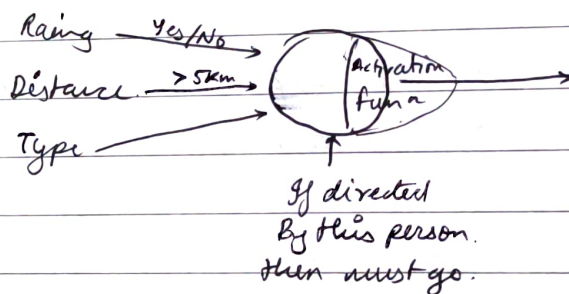 Raing Yes/No
Distance >5km
Type
Activation
funⁿ
If directed
By this person.
then must go.